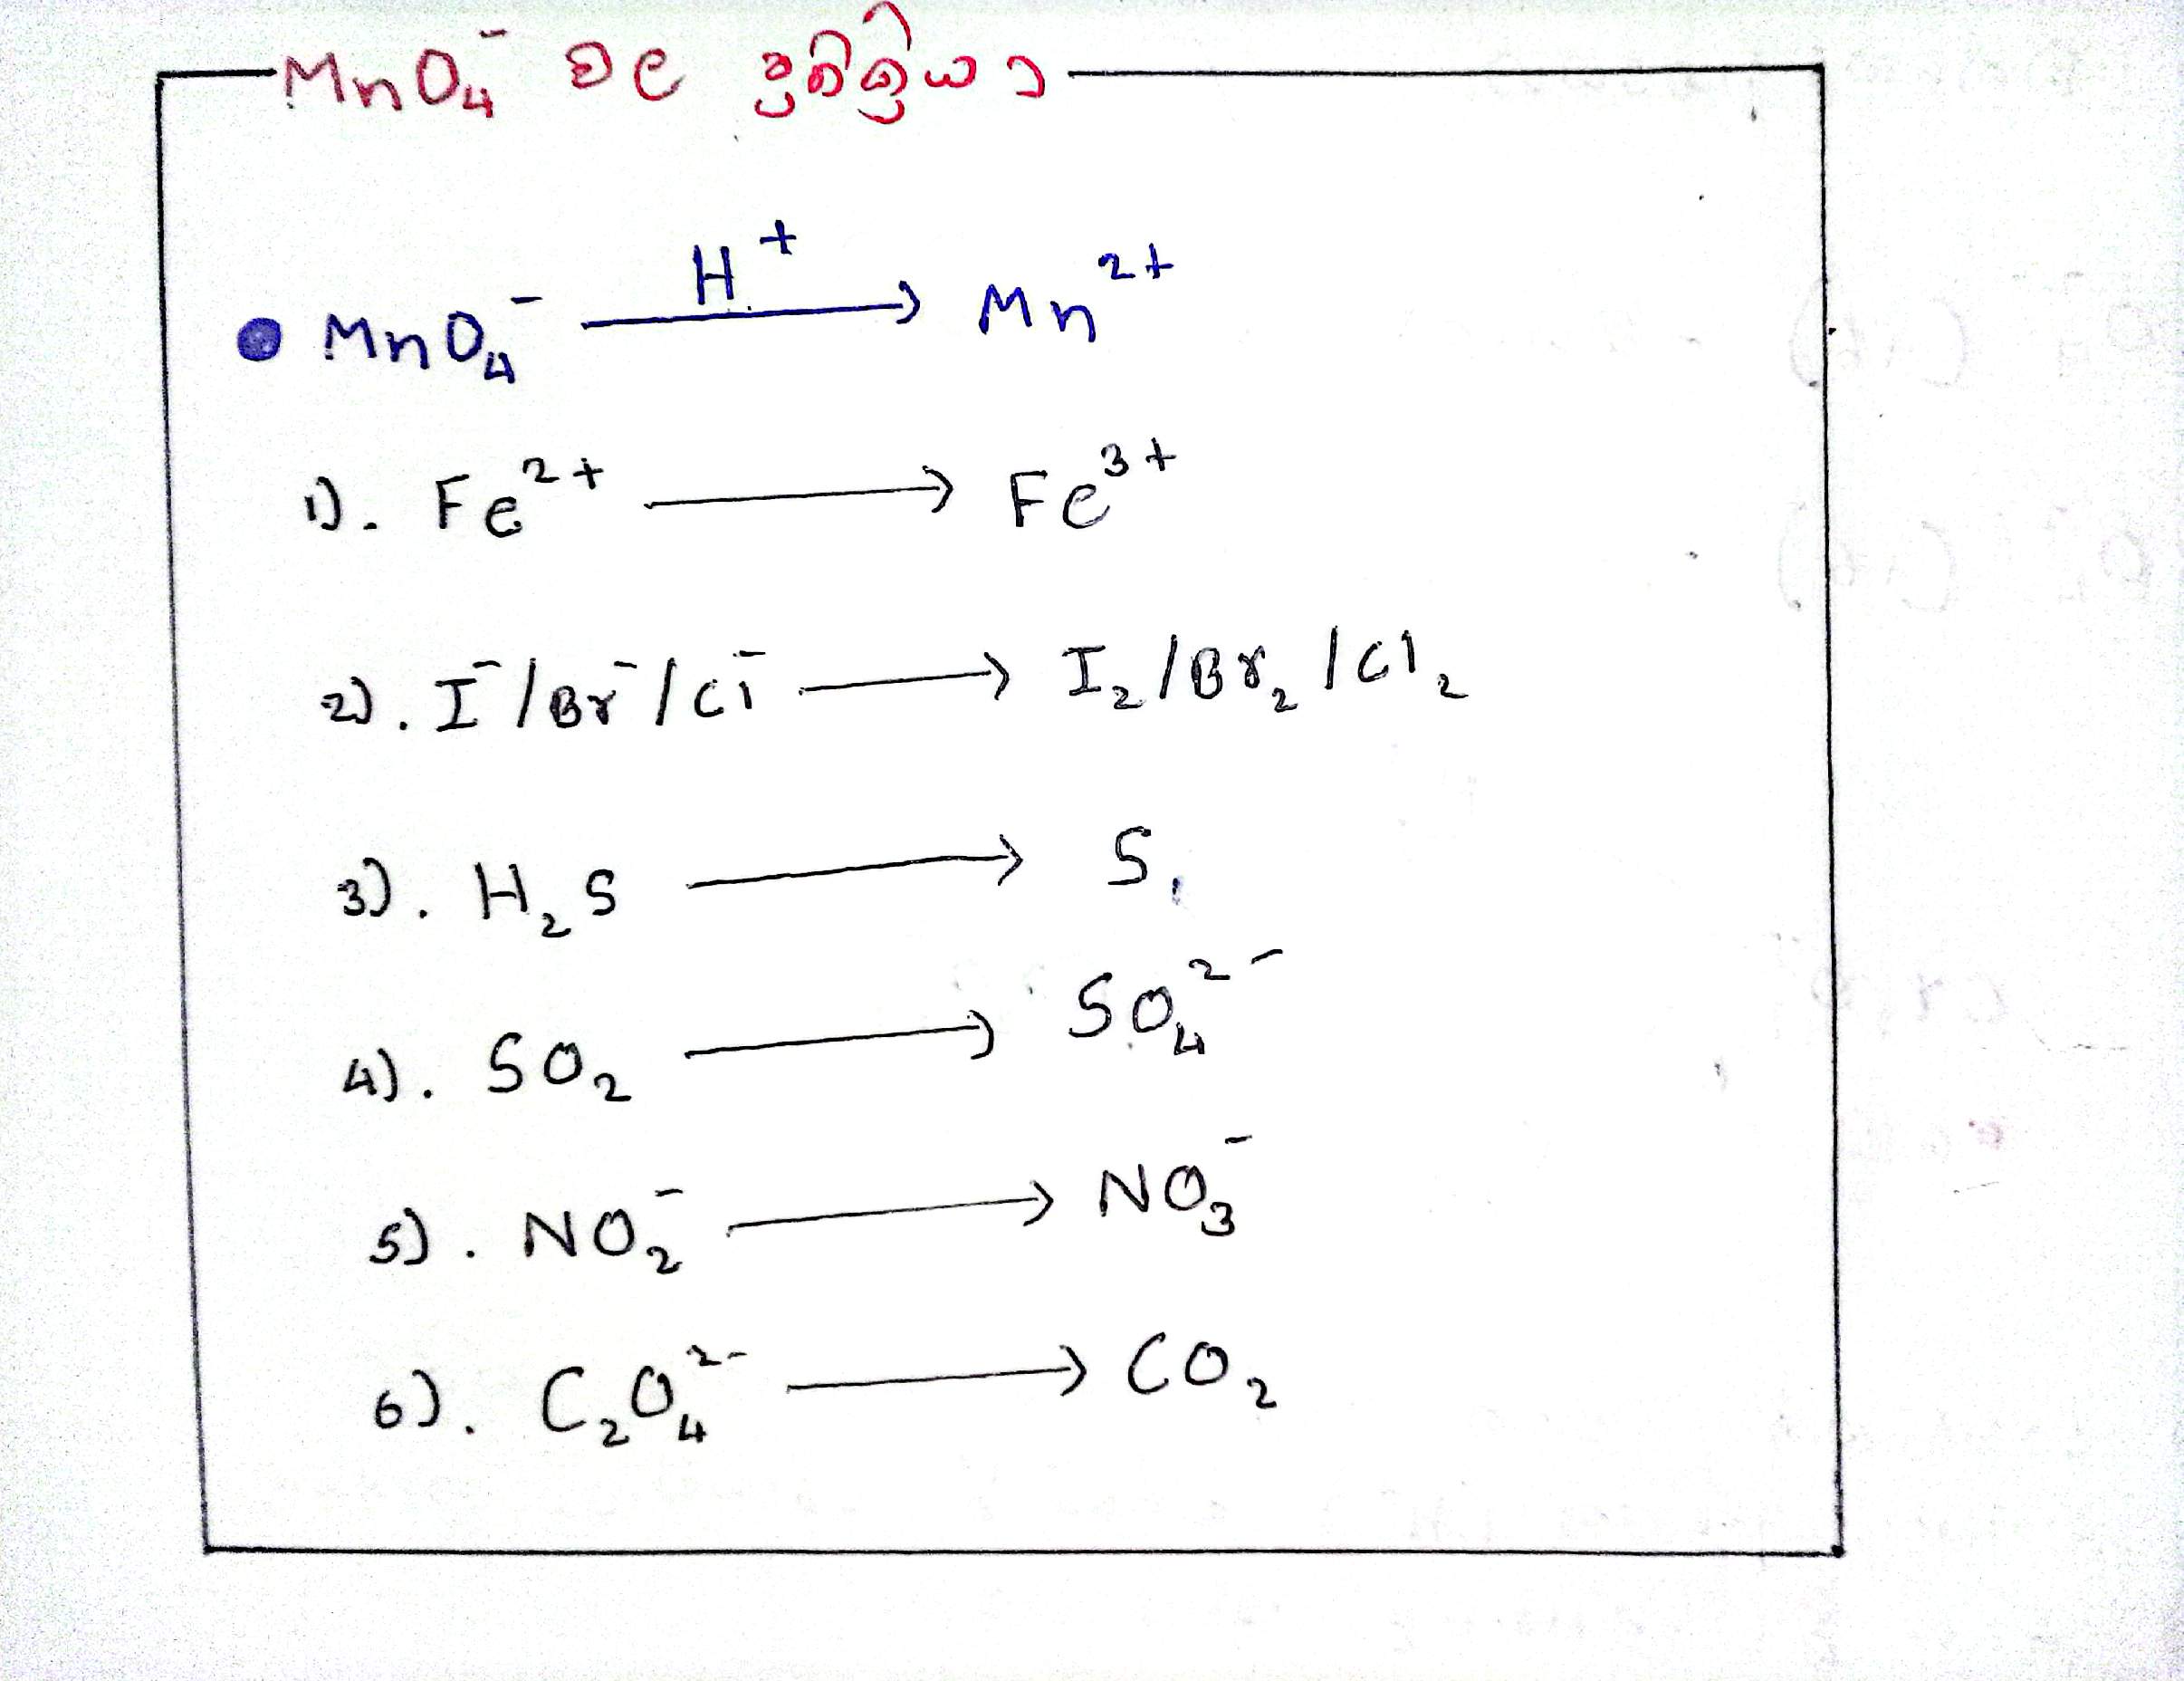 MnO₄⁻ වල ප්‍රතික්‍රියා
● MnO₄⁻ —H⁺→ Mn²⁺
1). Fe²⁺ ⟶ Fe³⁺
2). I⁻/Br⁻/Cl⁻ ⟶ I₂/Br₂/Cl₂
3). H₂S ⟶ S
4). SO₂ ⟶ SO₄²⁻
5). NO₂⁻ ⟶ NO₃⁻
6). C₂O₄²⁻ ⟶ CO₂